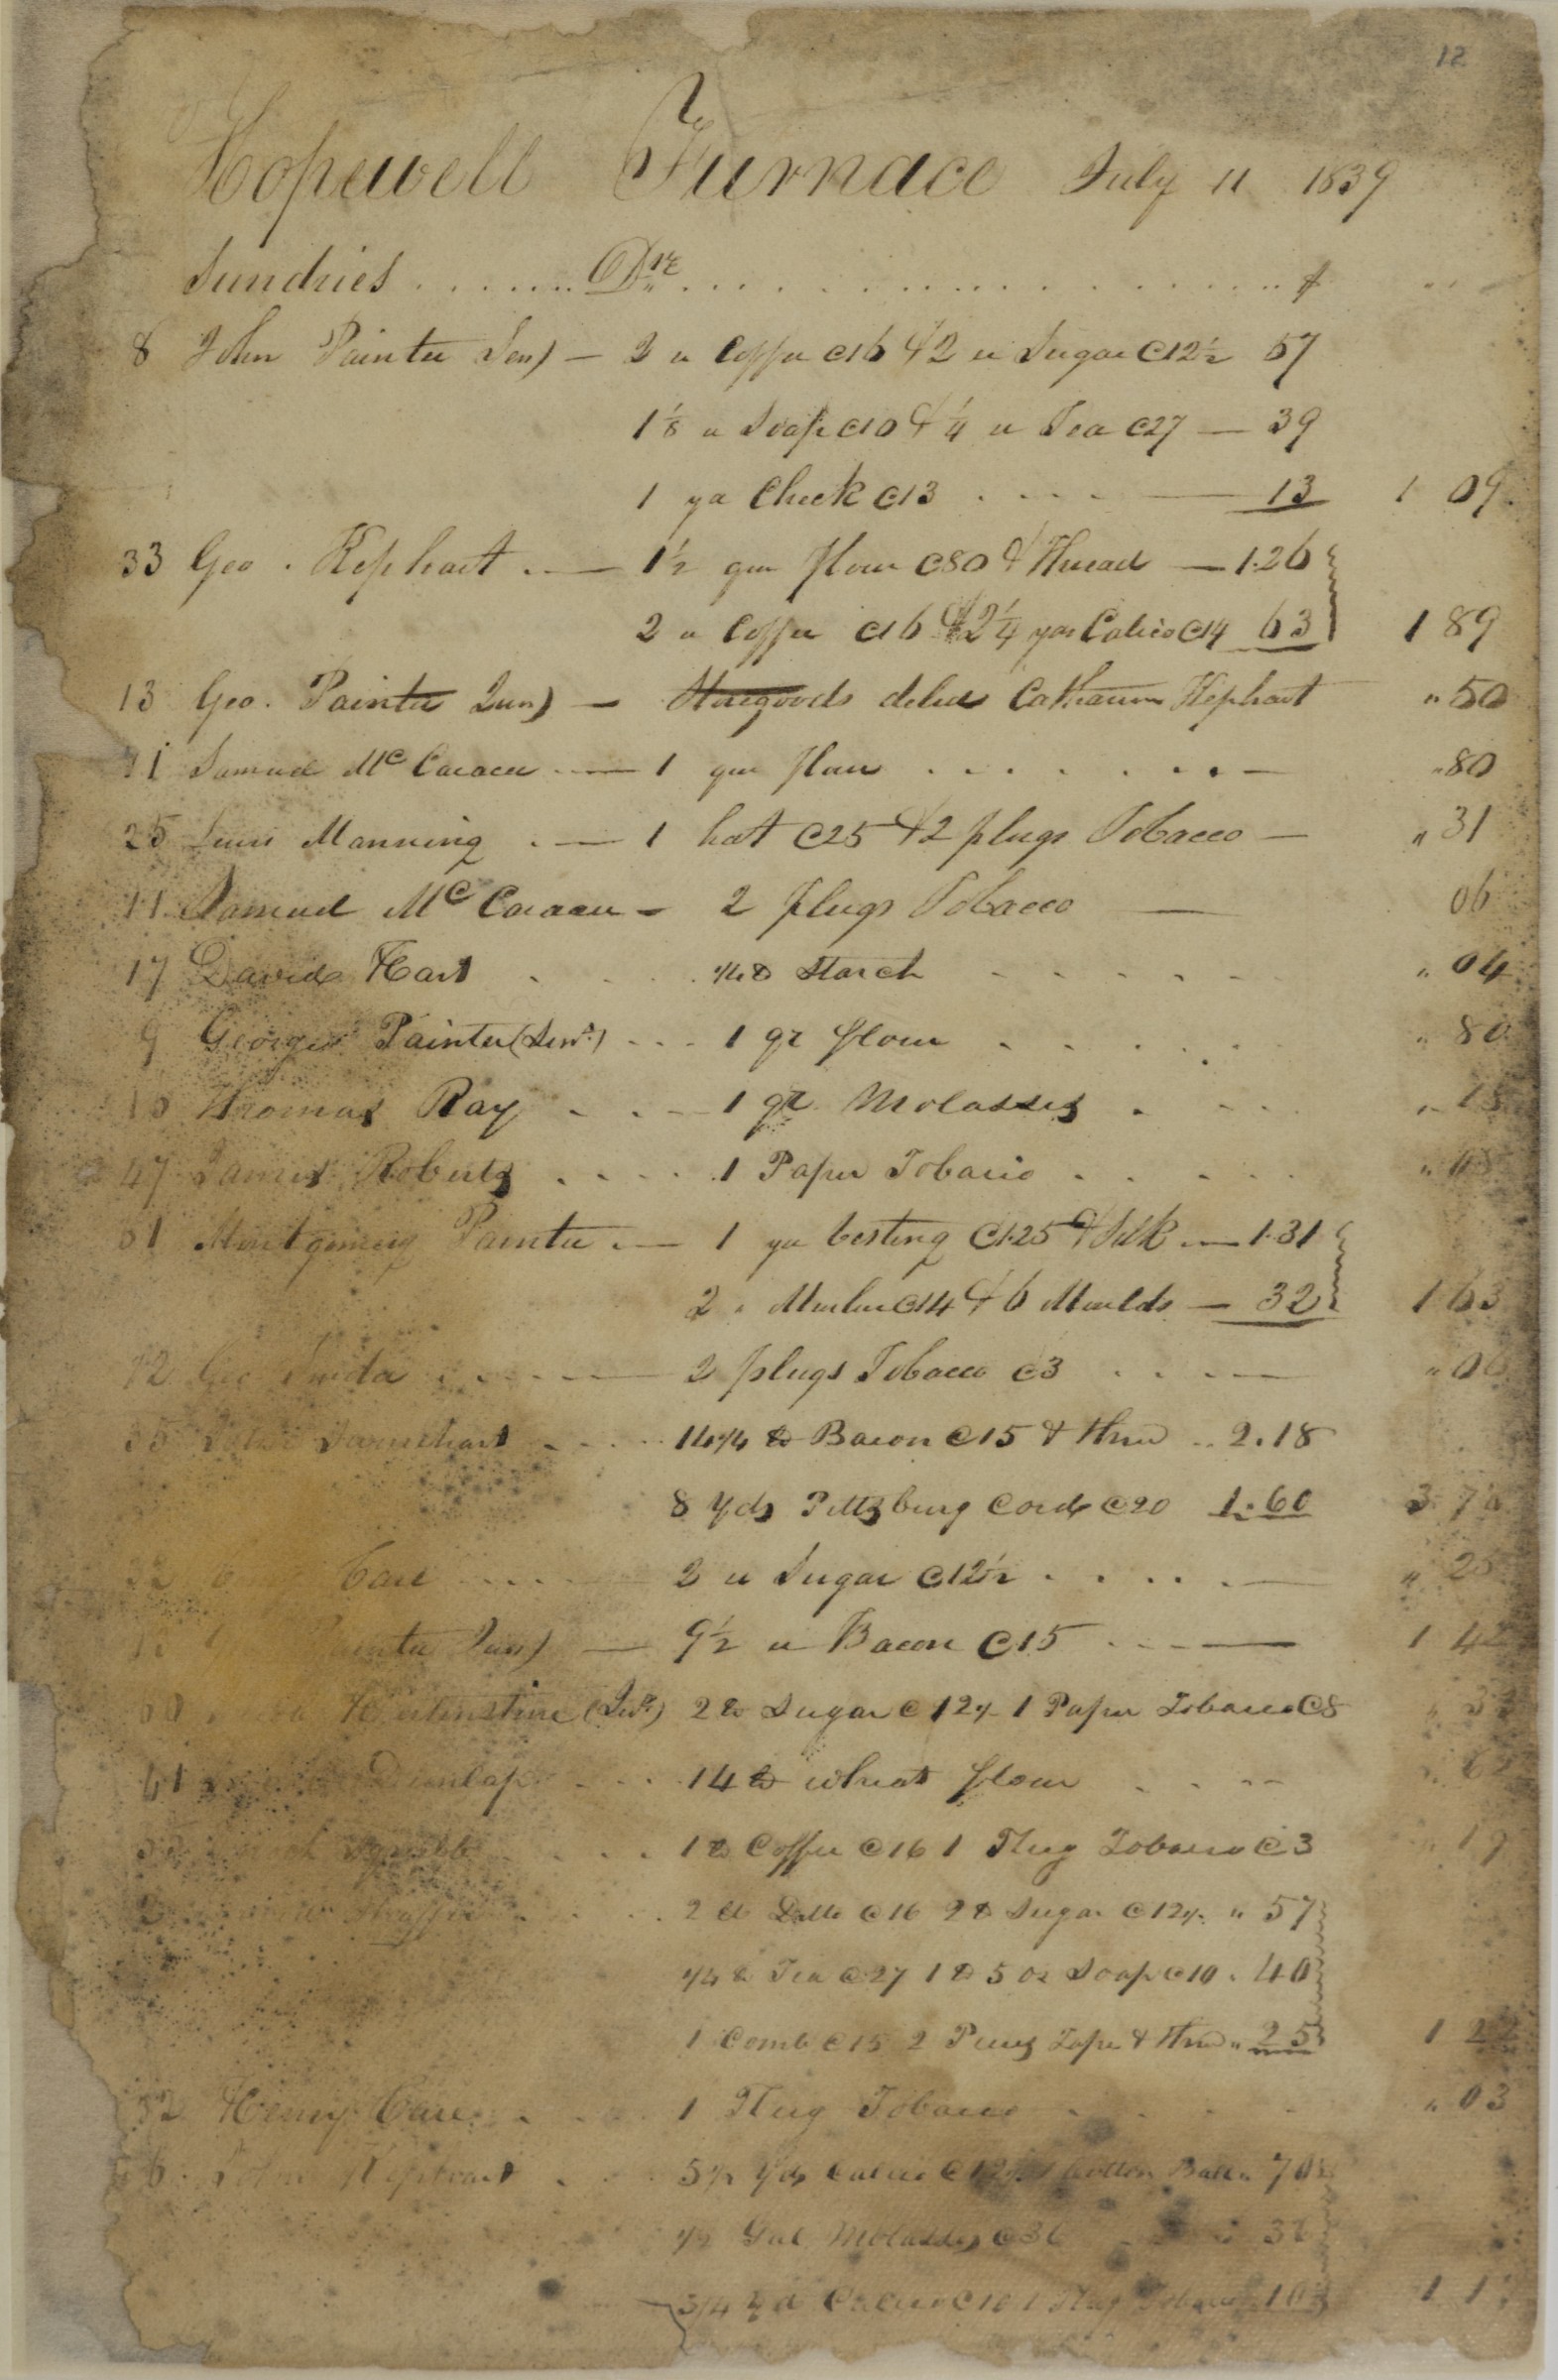 12
Hopewell Furnace July 11 1839
Sundries . . . . . . Drs . . . . . . . . . . . . . . . . $
8 John Painter Sen) — 2 " Coffee @16 & 2 " Sugar @12½ 57
1⅛ " Soap @10 & ¼ " Tea @27 — 39
1 yd Check @13 . . . . — 13 1 09
33 Geo. Hephart . — 1½ qur flour @80 & Thread — 1.26
2 " Coffee @16 & 2¼ yds Calico @14 63 1 89
13 Geo. Painter Jun) — Storegoods delvd Catharine Hephart " 50
11 Samuel Mc Caraen . — 1 qur flour . . . . . . . — " 80
25 Lewis Manning . — 1 hat @25 & 2 plugs Tobacco — " 31
11 Samuel Mc Caraen - 2 plugs Tobacco — 06
17 David Hart . . . ¼ lb Starch . . . . . . " 04
9 George Painter (Senr) . . . 1 qr flour . . . . . " 80
Thomas Ray . . — 1 qt Molasses . . . "
47 James Roberts . . . . 1 Paper Tobacco . . . . . "
61 Montgomery Painter . — 1 yd Vesting @1.25 & Silk — 1.31
2 " Muslin @14 & 6 Moulds — 32 1 63
Geo . . . — 2 plugs Tobacco @3 . . . — " 06
. . . . 14¼ lb Bacon @15 & Thrd .. 2.18
8 Yds Pittsburg Cord @20 1.60 3 78
Care . . . — 2 " Sugar @12½ . . . . . — " 25
Painter Jun) — 9½ " Bacon @15 . . — 1 42
(Senr) 2 lb Sugar @12½ 1 Paper Tobacco @8 "
41 Dunlap . . . 14 lb wheat flour . . . .
. . . 1 lb Coffee @16 1 Plug Tobacco @3 " 19
. . . 2 lb Ditto @16 2 lb Sugar @12½ " 57
¼ lb Tea @27 1 lb 5 oz Soap @10 . 40
1 Comb @15 2 Pieces Tape & Thrd " 25 1 22
32 Henry Care . . . 1 Plug Tobacco . . . . " 03
John Hephart . . 5½ Yds Calico @12½ 1 Cotton Ball " 70
½ Gal Molasses @36
3/4 Yd Calico 1 Plug Tobacco